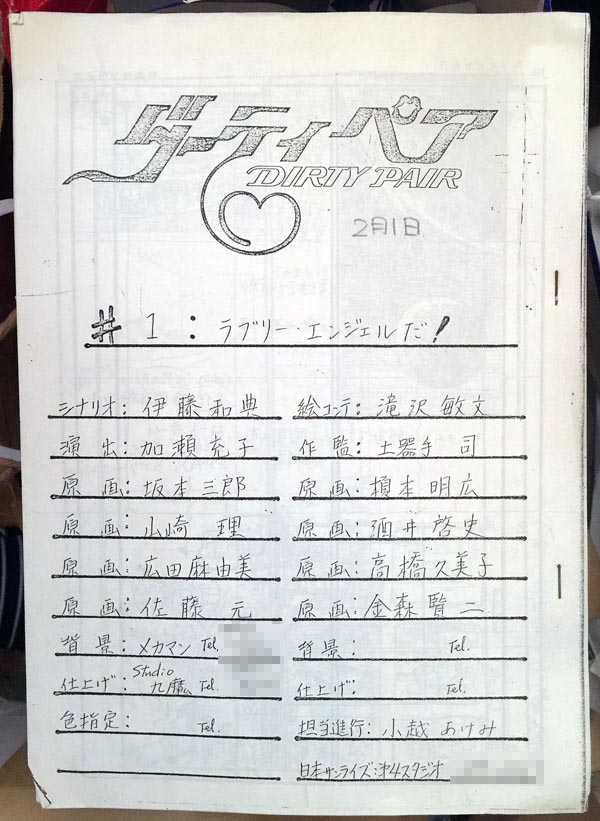 ダーティペア
DIRTY PAIR
2月1日
#1:ラブリー・エンジェルだ!
シナリオ:伊藤和典 絵コンテ:滝沢敏文
演出:加瀬充子 作監:土器手 司
原画:坂本三郎 原画:榎本明広
原画:山崎 理 原画:酒井啓史
原画:広田麻由美 原画:高橋久美子
原画:佐藤 元 原画:金森賢二
背景:メカマン Tel. 背景: Tel.
仕上げ:Studio九魔 Tel. 仕上げ: Tel.
色指定: Tel. 担当進行:小越あけみ
日本サンライズ:第4スタジオ